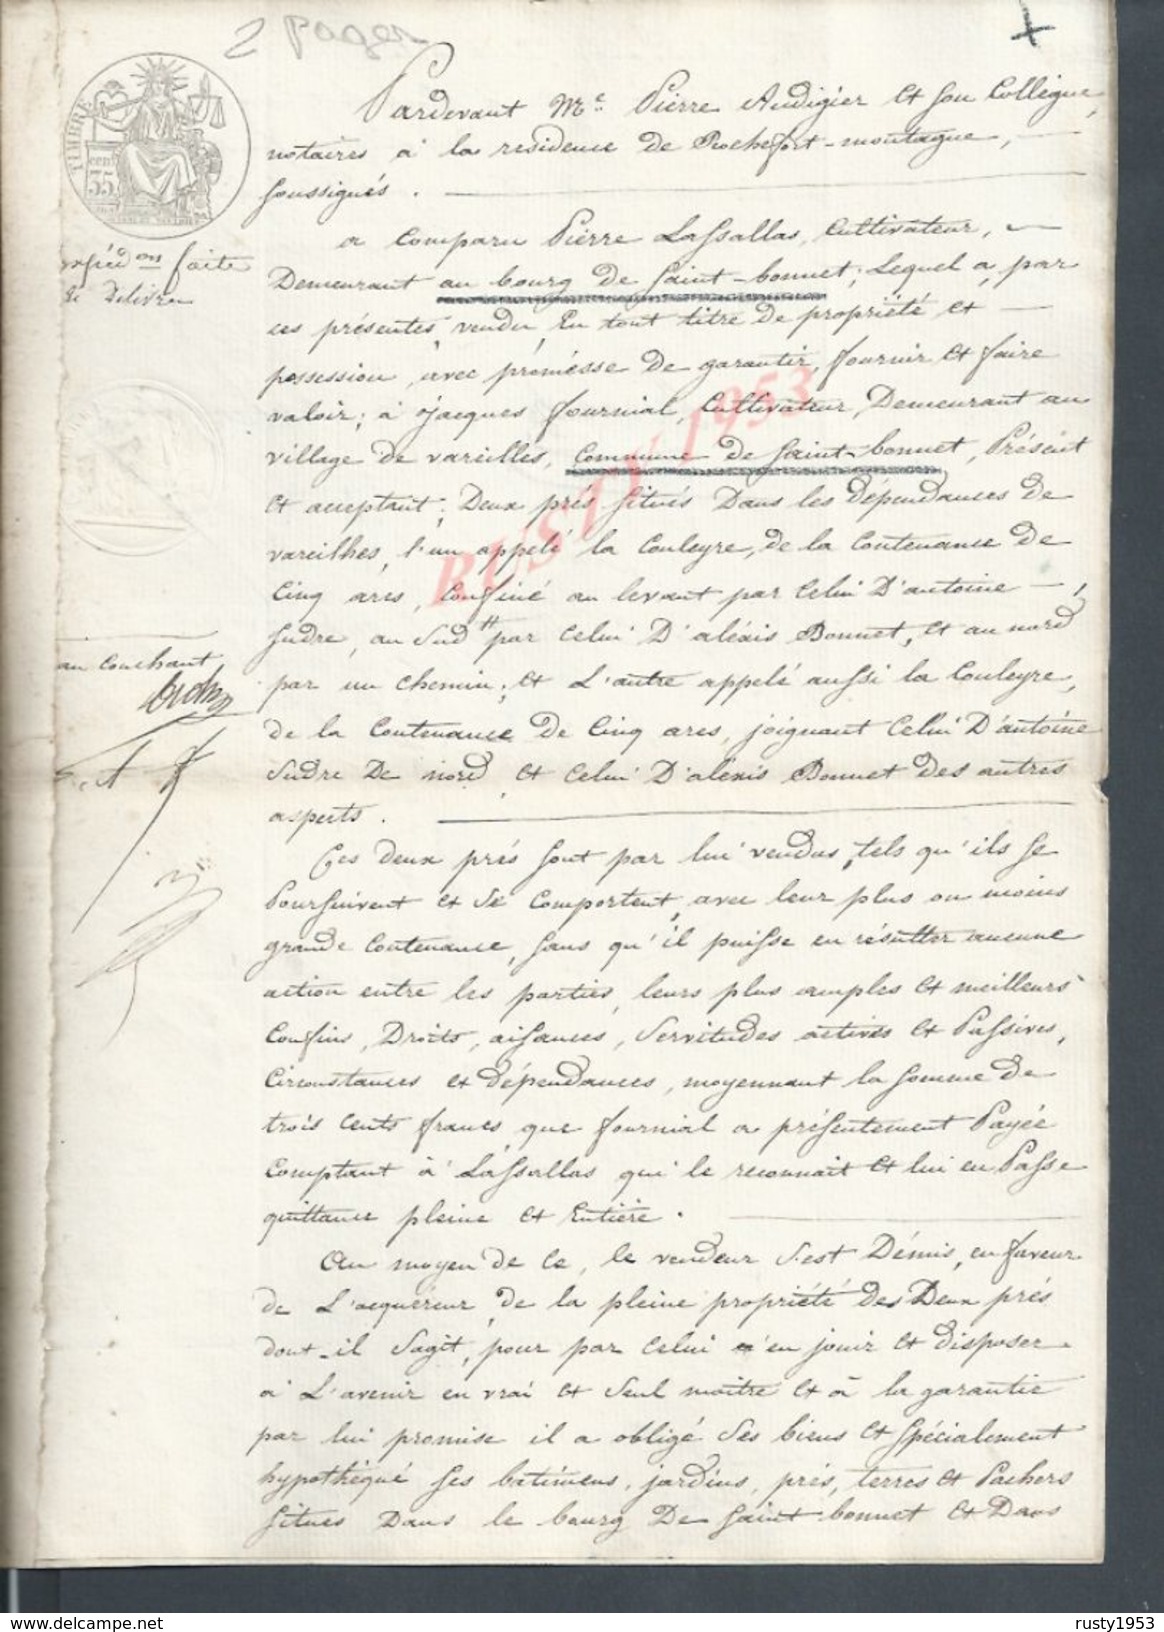 2 pages
TIMBRE
cen
35
Pardevant Me. Pierre Audigier et son Collègue,
notaires à la residence de Rochefort-montagne,
soussignés.
a comparu Pierre Lassallas, Cultivateur,
Demeurant au bourg de Saint-bonnet; Lequel a, par
ces présentes, vendu, En tout titre de propriété et
possession, avec promesse de garantir, fournir et faire
valoir; à Jacques fournial, Cultivateur, Demeurant au
village de vareilles, Commune de Saint-bonnet, Présent
et acceptant; Deux prés situés Dans les dépendances de
vareilhes, l'un appelé la Couleyre, de la Contenance De
Cinq ares, Confiné au levant par Celui D'antoine,
Sudre, au Sud # par Celui D'alexis Bonnet, et au nord
par un chemin; et L'autre appelé aussi la Couleyre,
De la Contenance De Cinq ares, joignant Celui D'antoine
Sudre De nord, et Celui D'alexis Bonnet des autres
aspects.
Ces deux prés sont par lui vendus, tels qu'ils se
Poursuivent et Se Comportent, avec leur plus ou moins
grande Contenance, sans qu'il puisse en résulter aucune
action entre les parties, leurs plus amples et meilleurs
Confins, Droits, aisances, Servitudes actives et Passives,
Circonstances et dépendances, moyennant la somme de
trois cents francs, que fournial a présentement Payée
Comptant à Lassallas qui le reconnait et lui en Passe
quittance pleine et Entière.
Au moyen de ce, le vendeur s'est Démis, en faveur
de L'acquéreur, de la pleine propriété des Deux prés
dont-il Sagit, pour par Celui n'en jouir et disposer
à L'avenir en vrai et Seul maitre et à la garantie
par lui promise il a obligé Ses biens et spécialement
hypothéqué ses batimens, jardins, prés, terres et Pachers
situés Dans le bourg De Saint-bonnet et Dans
faite
et Délivrée
au Couchant
RUSTY 1953
rusty1953
www.delcampe.net